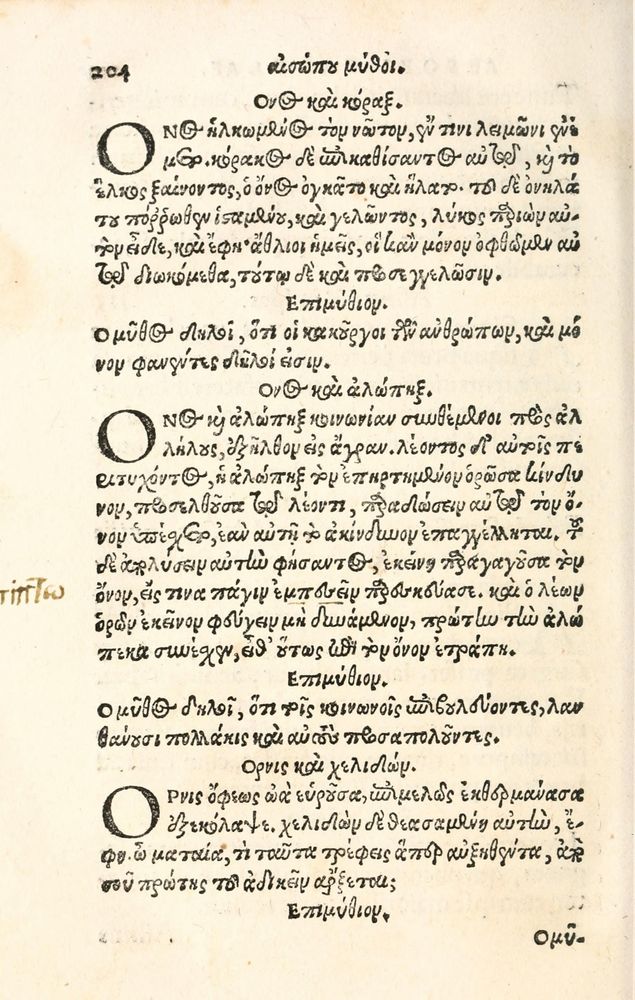 204 αἰσώπου μῦθοι.
Ονος καὶ κόραξ.
ΟΝος ἡλκωμένος τὸν νῶτον, ἔν τινι λειμῶνι ἐνέ
μετο. κόρακος δὲ ἐπικαθίσαντος αὐτῷ, καὶ τὸ
ἕλκος ξαίνοντος, ὁ ὄνος ὀγκᾶτο καὶ ἥλατο. τοῦ δὲ ὀνηλά
του πόῤῥωθεν ἱσταμένου, καὶ γελῶντος, λύκος παριὼν αὐ-
τὸν εἶδε, καὶ ἔφη· ἄθλιοι ἡμεῖς, οἳ κἂν μόνον ὀφθῶμεν αὐ
τῷ διωκόμεθα, τούτῳ δὲ καὶ προσεγγελῶσιν.
Επιμύθιον.
Ο μῦθος δηλοῖ, ὅτι οἱ κακοῦργοι τῶν ἀνθρώπων, καὶ μό
νον φανέντες δῆλοί εἰσιν.
Ονος καὶ ἀλώπηξ.
ΟΝος καὶ ἀλώπηξ κοινωνίαν συνθέμενοι πρὸς ἀλ
λήλους, ἐξῆλθον εἰς ἄγραν. λέοντος δ' αὐτοῖς πε
ριτυχόντος, ἡ ἀλώπηξ τὸν ἐπηρτημένον ὁρῶσα κίνδυ
νον, προσελθοῦσα τῷ λέοντι, παραδώσειν αὐτῷ τὸν ὄ-
νον ὑπέσχετο, ἐὰν αὐτῇ τὸ ἀκίνδυνον ἐπαγγέλληται. τοῦ
δὲ ἀπολύσειν αὐτὴν φήσαντος, ἐκείνη παραγαγοῦσα τὸν
ὄνον, εἴς τινα πάγην ἐμπεσεῖν παρεσκεύασε. καὶ ὁ λέων
ὁρῶν ἐκεῖνον φεύγειν μὴ δυνάμενον, πρώτην τὴν ἀλώ
πεκα συνέσχεν, εἶθ' οὕτως ἐπὶ τὸν ὄνον ἐτράπη.
Επιμύθιον.
Ο μῦθος δηλοῖ, ὅτι τοῖς κοινωνοῖς ἐπιβουλεύοντες, λαν
θάνουσι πολλάκις καὶ αὑτοὺς προσαπολοῦντες.
Ορνις καὶ χελιδών.
ΟΡνις ὄφεως ὠὰ εὑροῦσα, ἐπιμελῶς ἐκθερμάνασα
ἐξεκόλαψε. χελιδὼν δὲ θεασαμένη αὐτὴν, ἔ-
φη. ὦ ματαία, τί ταῦτα τρέφεις ἅπερ αὐξηθέντα, ἀπὸ
σοῦ πρώτης τοῦ ἀδικεῖν ἄρξεται;
Επιμύθιον.
Ο μῦ-